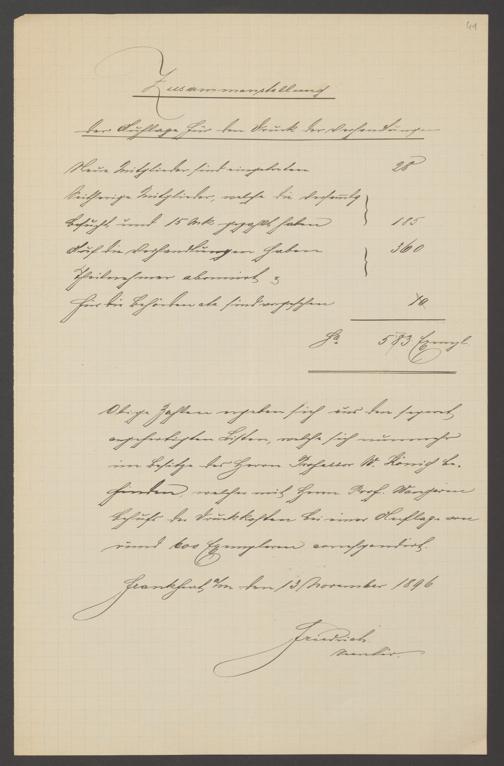 41
Zusammenstellung
der Auflage für den Druck der Verhandlungen
Neue Mitglieder sind eingetreten 28
Seitherige Mitglieder, welche die Versammlg
besucht und 15 Mk gezahlt haben 185
Auf die Verhandlungen haben 360
Theilnehmer abonnirt
für die Behörden etc. sind vorgesehen 10
Sa. 583 Exempl.
Obige Zahlen ergeben sich aus den separat
angefertigten Listen, welche sich nunmehr
im Besitze des Herrn Professor W. König be-
finden, welcher mit Herrn Prof. Wangerin
behufs der Druckkosten bei einer Auflage von
rund 600 Exemplaren correspondirt.
Frankfurt a/M den 13 November 1896
Friedrich